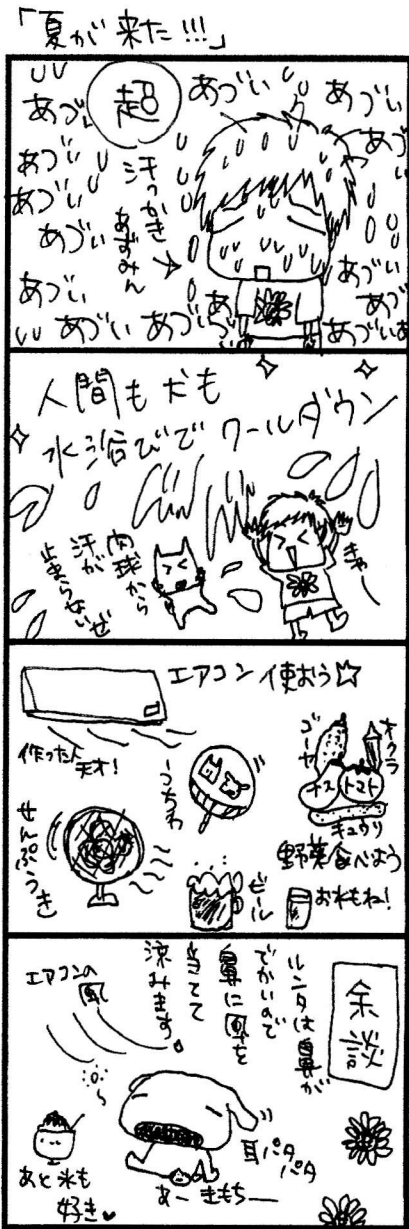 「夏が来た!!!」
あづい
あづい
あづい
超
汗っかき
あずみん
あづい
あづい
あづい
あづい
あづい
あづい
あづい
あづい
あづい
あづい
人間も犬も
水浴びで クールダウン
きゃー
肉球から
汗が
止まらないぜ
エアコン使おう☆
作った人
天才!
うちわ
せんぷうき
ビール
ゴーヤ
オクラ
ナス
トマト
キュウリ
野菜食べよう
お水もね!
余談
ルンタは鼻が
でかいので
鼻に風を
当てて
涼みます。
エアコンの
風
耳パタ
パタ
あーきもちー
あと氷も
好き♥